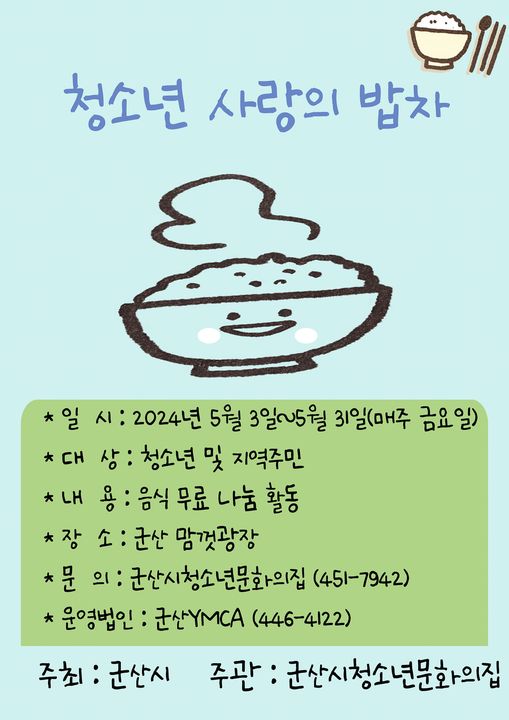 청소년 사랑의 밥차
* 일 시 : 2024년 5월 3일~5월 31일(매주 금요일)
* 대 상 : 청소년 및 지역주민
* 내 용 : 음식 무료 나눔 활동
* 장 소 : 군산 맘껏광장
* 문 의 : 군산시청소년문화의집 (451-7942)
* 운영법인 : 군산YMCA (446-4122)
주최 : 군산시 주관 : 군산시청소년문화의집